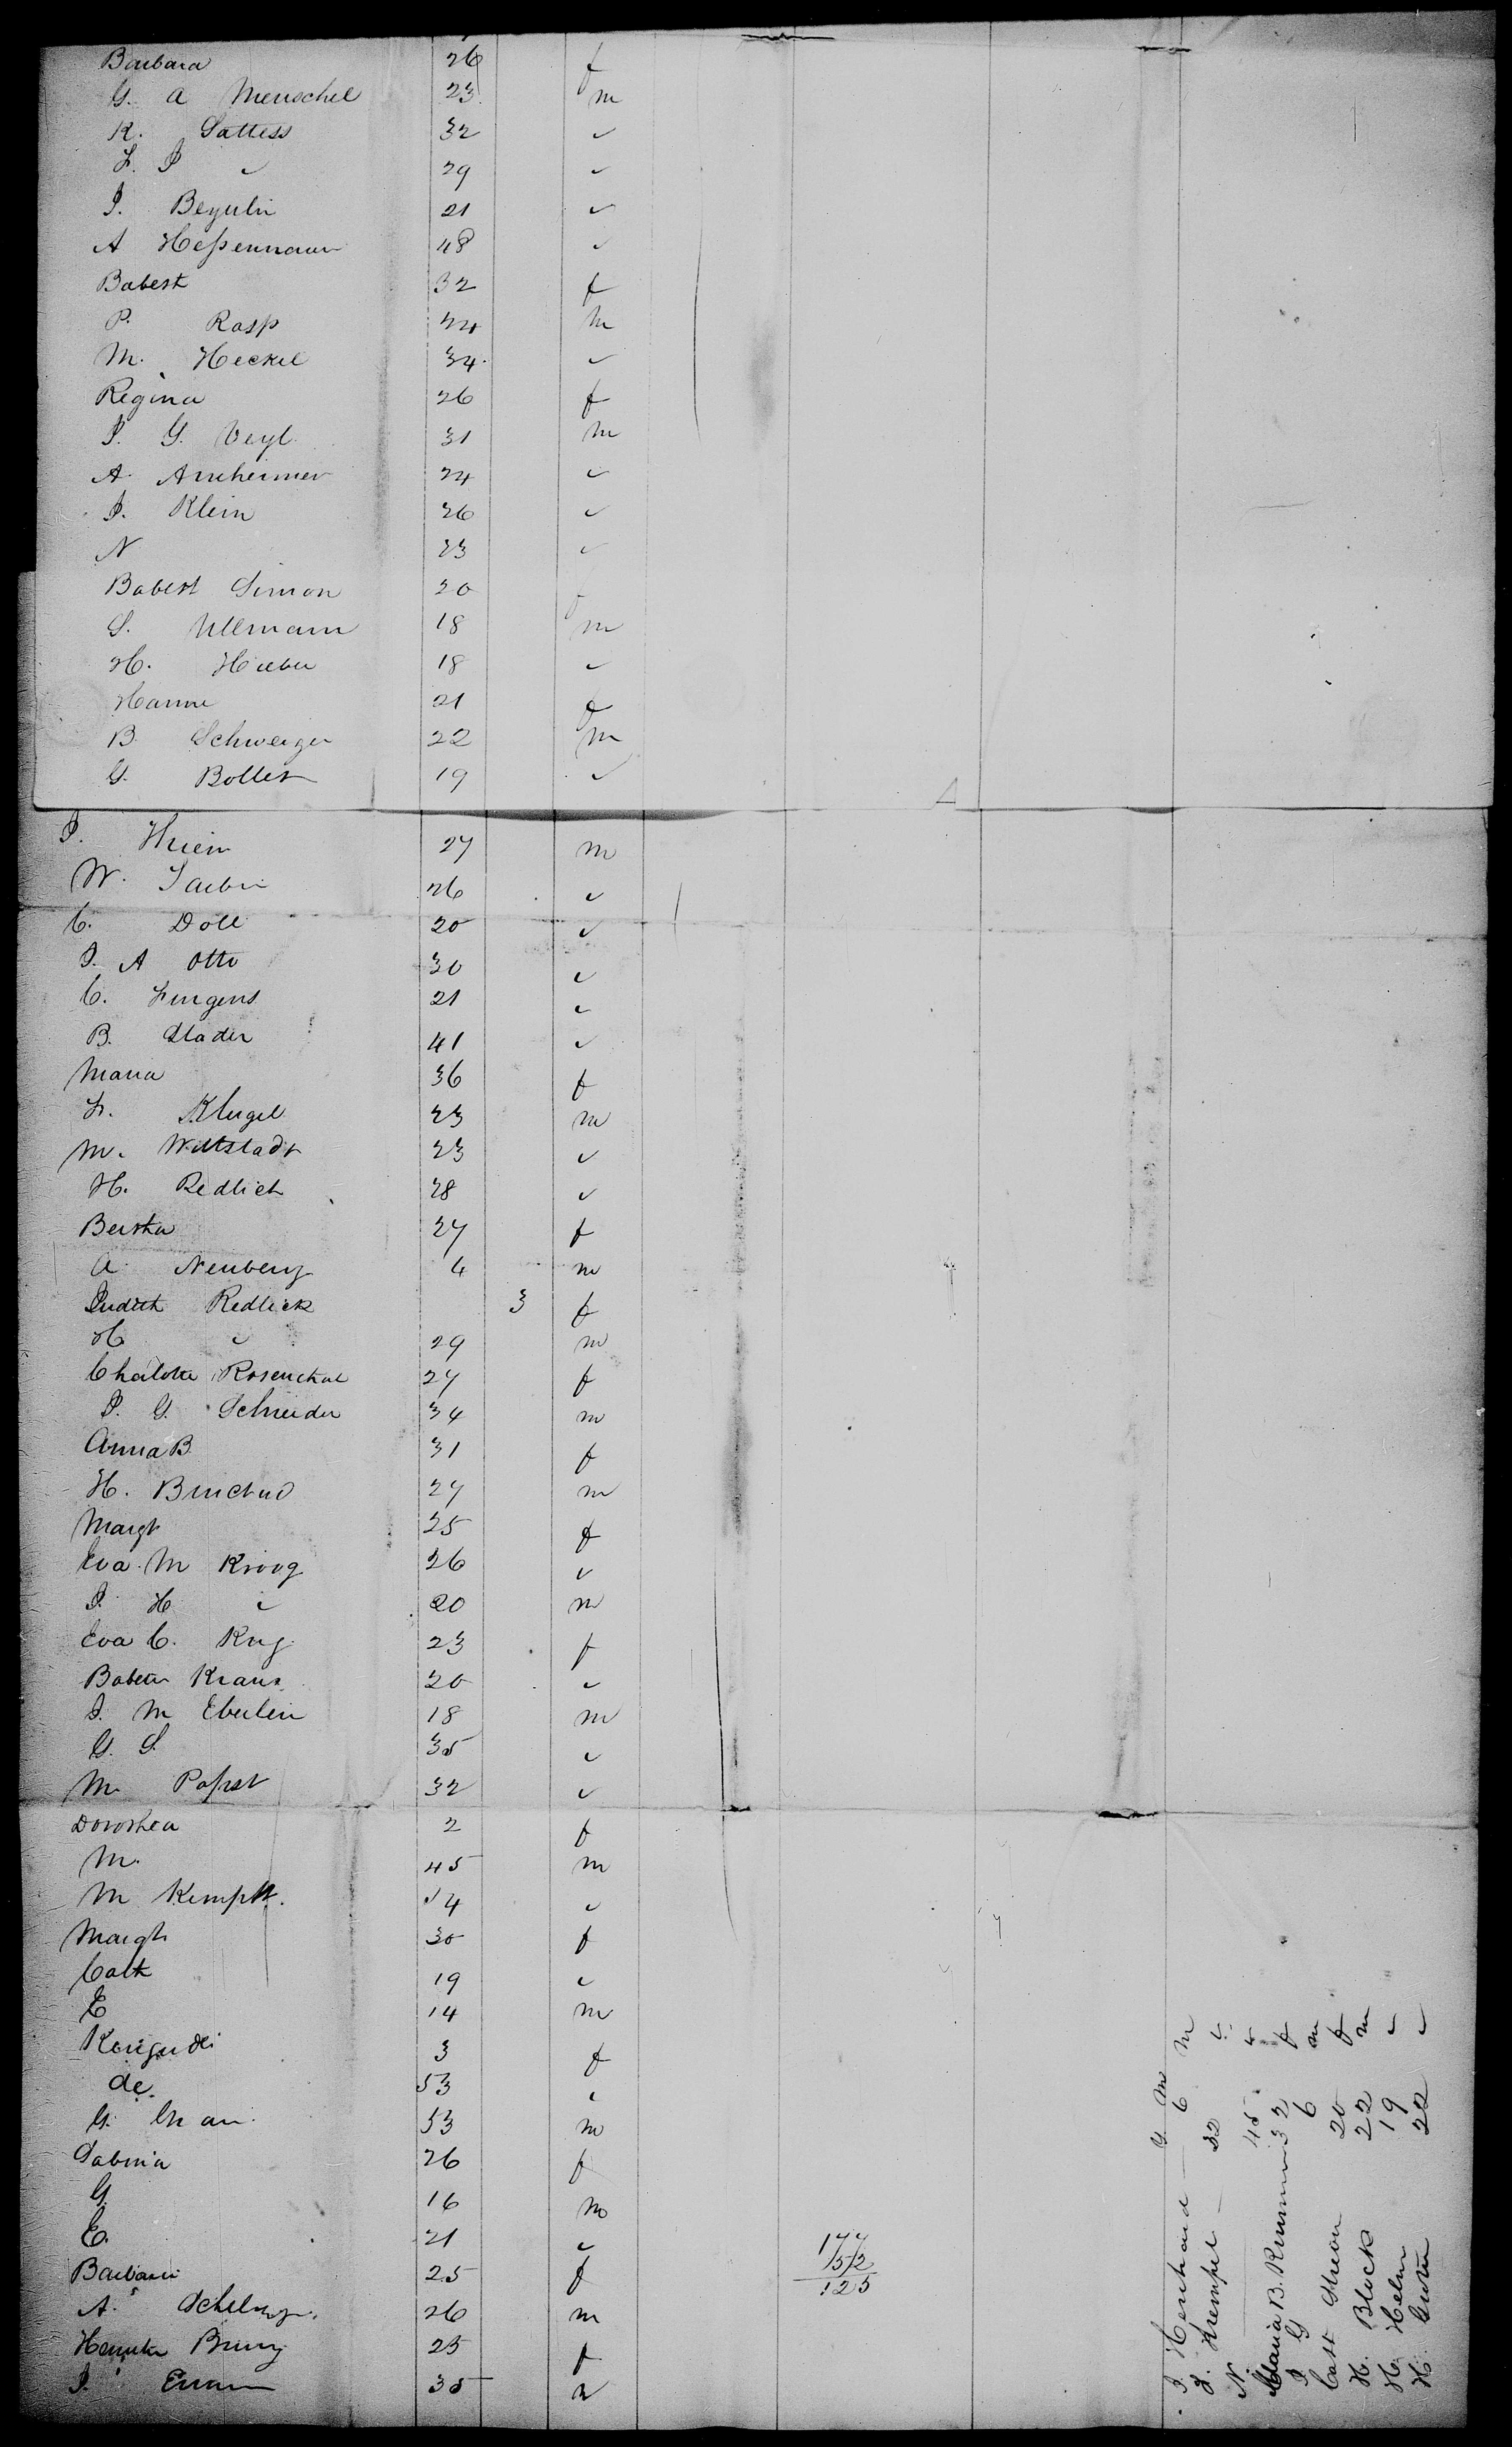 Barbara 26 f
G. A Menschel 23 m
K. Sattess 32 ✓
F. P ✓ 29 ✓
J. Beyulin 21 ✓
A Heßenmaun 48 ✓
Babest 32 f
P. Rasp 24 m
M. Heckel 34 ✓
Regina 26 f
J. G. Veyl 31 m
A. Arnheimer 24 ✓
J. Klein 26 ✓
N 23 ✓
Babest Simon 20
S. Ullmann 18 m
H. Hueber 18 ✓
Hanne 21 f
B. Schweiger 22 m
G. Bolles 19 ✓
J. Hrein 27 m
W. 26 ✓
C. Doll 20 ✓
J. A Otto 30 ✓
C. Jurgens 21 ✓
B. Stader 41 ✓
Maria 36 f
F. Klugel 23 m
M. Wittstadt 23 ✓
H. Redlich 28 ✓
Bertha 27 f
A Neuberg 4 m
Judith Redlick 3 f
H ✓ 29 m
Charlotte Rosenthal 27 f
J. G. Schneider 34 m
Anna B 31 f
H. 27 m
Margt 25 f
Eva M Kroog 26 ✓
J. H ✓ 20 m
Eva C. Krug 23 f
Babette Kraus 20 ✓
J. M Eberlein 18 m
G. S. 35 ✓
M. Papst 32 ✓
Dorothea 2 f
M. 45 m
M Kempft. 14 ✓
Margt 30 f
Cath 19 ✓
E 14 m
3 f
de. 53 ✓
G. 53 m
Sabina 26 f
G 16 m
E. 21 ✓
Barbara 25 f
A. 26 m
25 f
J. 35 m
177
52
125
Y M
J. Henhard — 6 m
J. Krempel — 32 ✓
N. — 45 ✓
Maria B. 32 f
J G 6 m
Cath 20 f
H. Block 22 m
H. Helm 19 ✓
H. 22 ✓